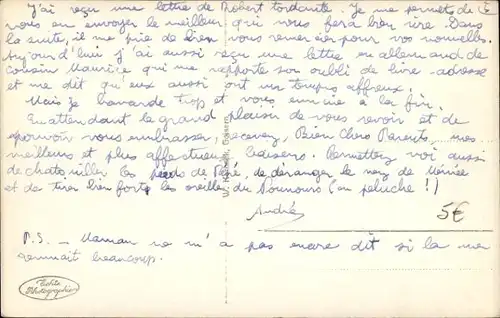 J'ai reçu une lettre de Robert tordante. Je me permets de
vous en envoyer le meilleur qui vous fera bien rire. Dans
la suite, il me prie de bien vous remercier pour vos nouvelles.
Aujourd'hui j'ai aussi reçu une lettre en allemand de
cousin Maurice qui me rapporte son oubli de livre-adresse
et me dit qu'eux aussi ont un temps affreux.
Mais je bavarde trop et vous ennuie à la fin.
En attendant le grand plaisir de vous revoir et de
pouvoir vous embrasser, recevez, Bien Chers Parents, mes
meilleurs et plus affectueux baisers. Permettez moi aussi
de chatouiller les pieds de Pépé, de déranger le nez de Mémée
et de tirer bien fort les oreilles du Nounours (en peluche!)
André
5€
P.S. - Maman ne m'a pas encore dit si la mer
remuait beaucoup.
Echte
Photographie